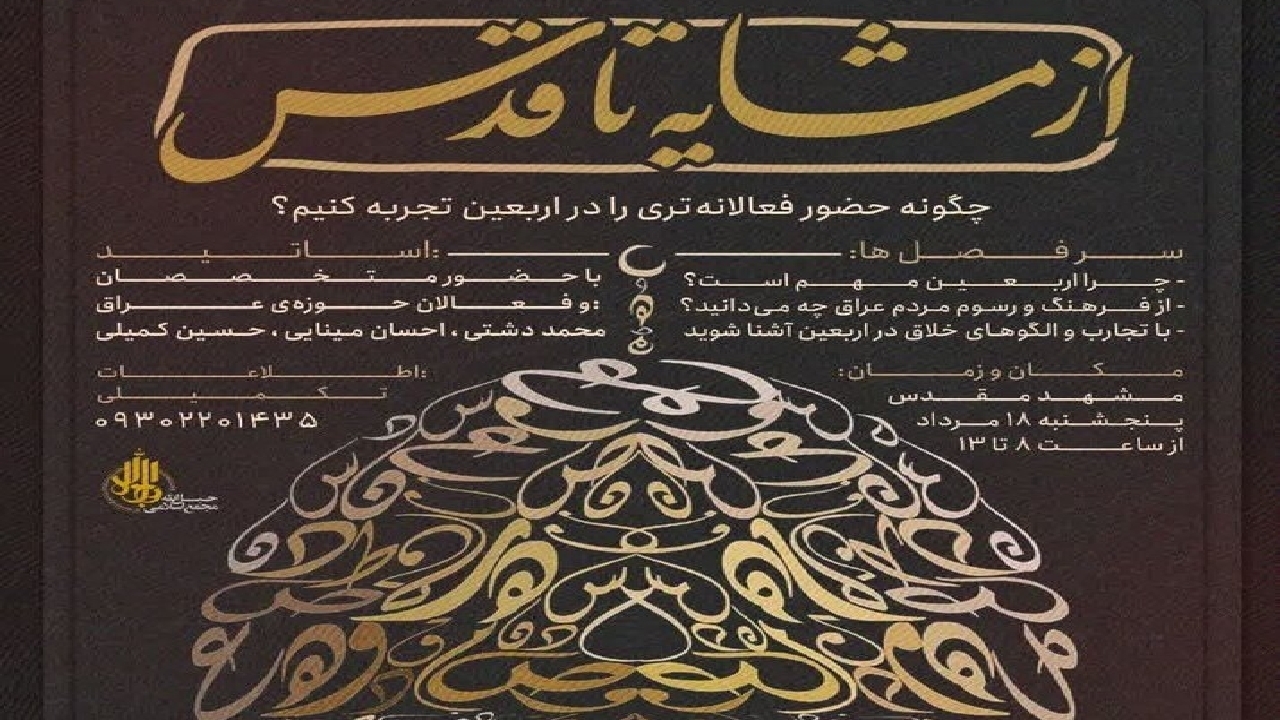 از مشایه تا قدس
چگونه حضور فعالانه‌تری را در اربعین تجربه کنیم؟
سرفصل ها:
- چرا اربعین مهم است؟
- از فرهنگ و رسوم مردم عراق چه می‌دانید؟
- با تجارب و الگوهای خلاق در اربعین آشنا شوید
اساتید:
با حضور متخصصان
و فعالان حوزه‌ی عراق:
محمد دشتی ، احسان مینایی ، حسین کمیلی
مکان و زمان:
مشهد مقدس
پنجشنبه ۱۸ مرداد
از ساعت ۸ تا ۱۳
اطلاعات:
تکمیلی
۰۹۳۰۲۲۰۱۴۳۵
حبل الله
مجمع اسلامی